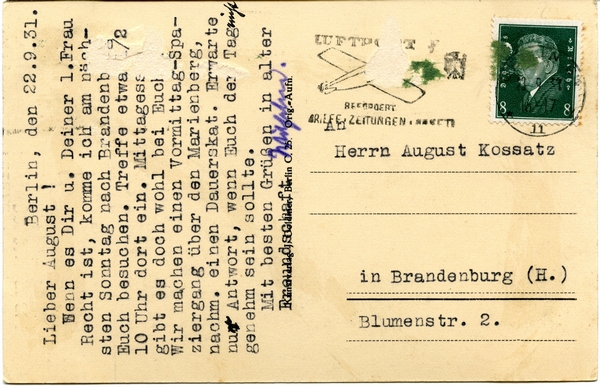 Berlin, den 22.9.31.
Lieber August !
Wenn es Dir u. Deiner l.Frau
Recht ist, komme ich am näch-
sten Sonntag nach Brandenb
Euch besuchen. Treffe etwa
10 Uhr dort ein. Mittagess
gibt es doch wohl bei Euch
Wir machen einen Vormittag-Spa-
ziergang über den Marienberg,
nachm. einen Dauerskat. Erwarte
nur Antwort, wenn Euch der Tag nicht
genehm sein sollte.
Mit besten Grüßen in alter
Freundschaft
Berlin C. 25. Orig.-Aufn.
LUFTPOST
BEFÖRDERT
BRIEFE-ZEITUNGEN-PAKETE
DEUTSCHES REICH
8 8
11
An
Herrn August Kossatz
in Brandenburg (H.)
Blumenstr. 2.